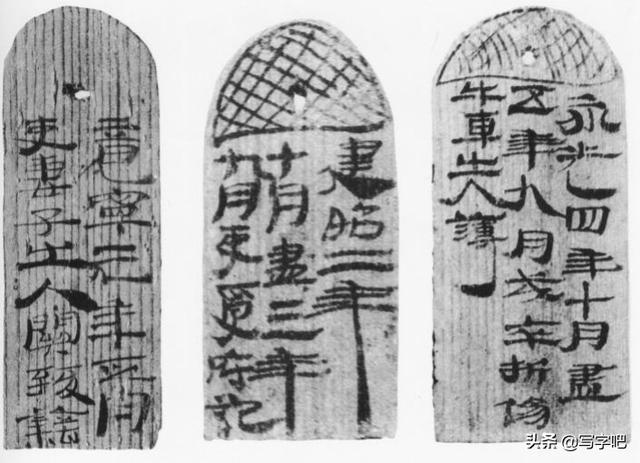 竟寧元年正月
吏妻子出入關致籍
建昭二年
十月盡三年
九月吏受府記
永光四年十月盡
五年九月戍卒折傷
牛車出入簿
头条 @写字吧